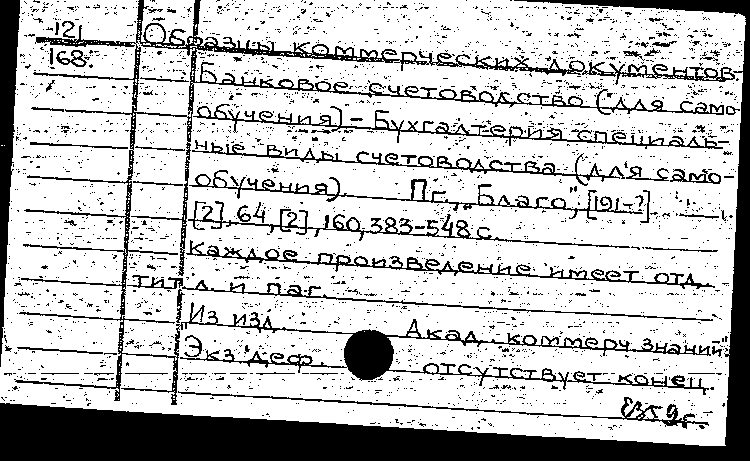 121
168
Образцы коммерческих документов-
Банковое счетоводство (для само-
обучения) - Бухгалтерия специаль-
ные виды счетоводства (для само-
обучения). Пг., "Благо", [191-?].
[2], 64, [2], 160, 383-548 с.
Каждое произведение имеет отд.
тит. л. и паг.
Из изд. "Акад. коммерч. знаний".
Экз. деф. отсутствует конец.